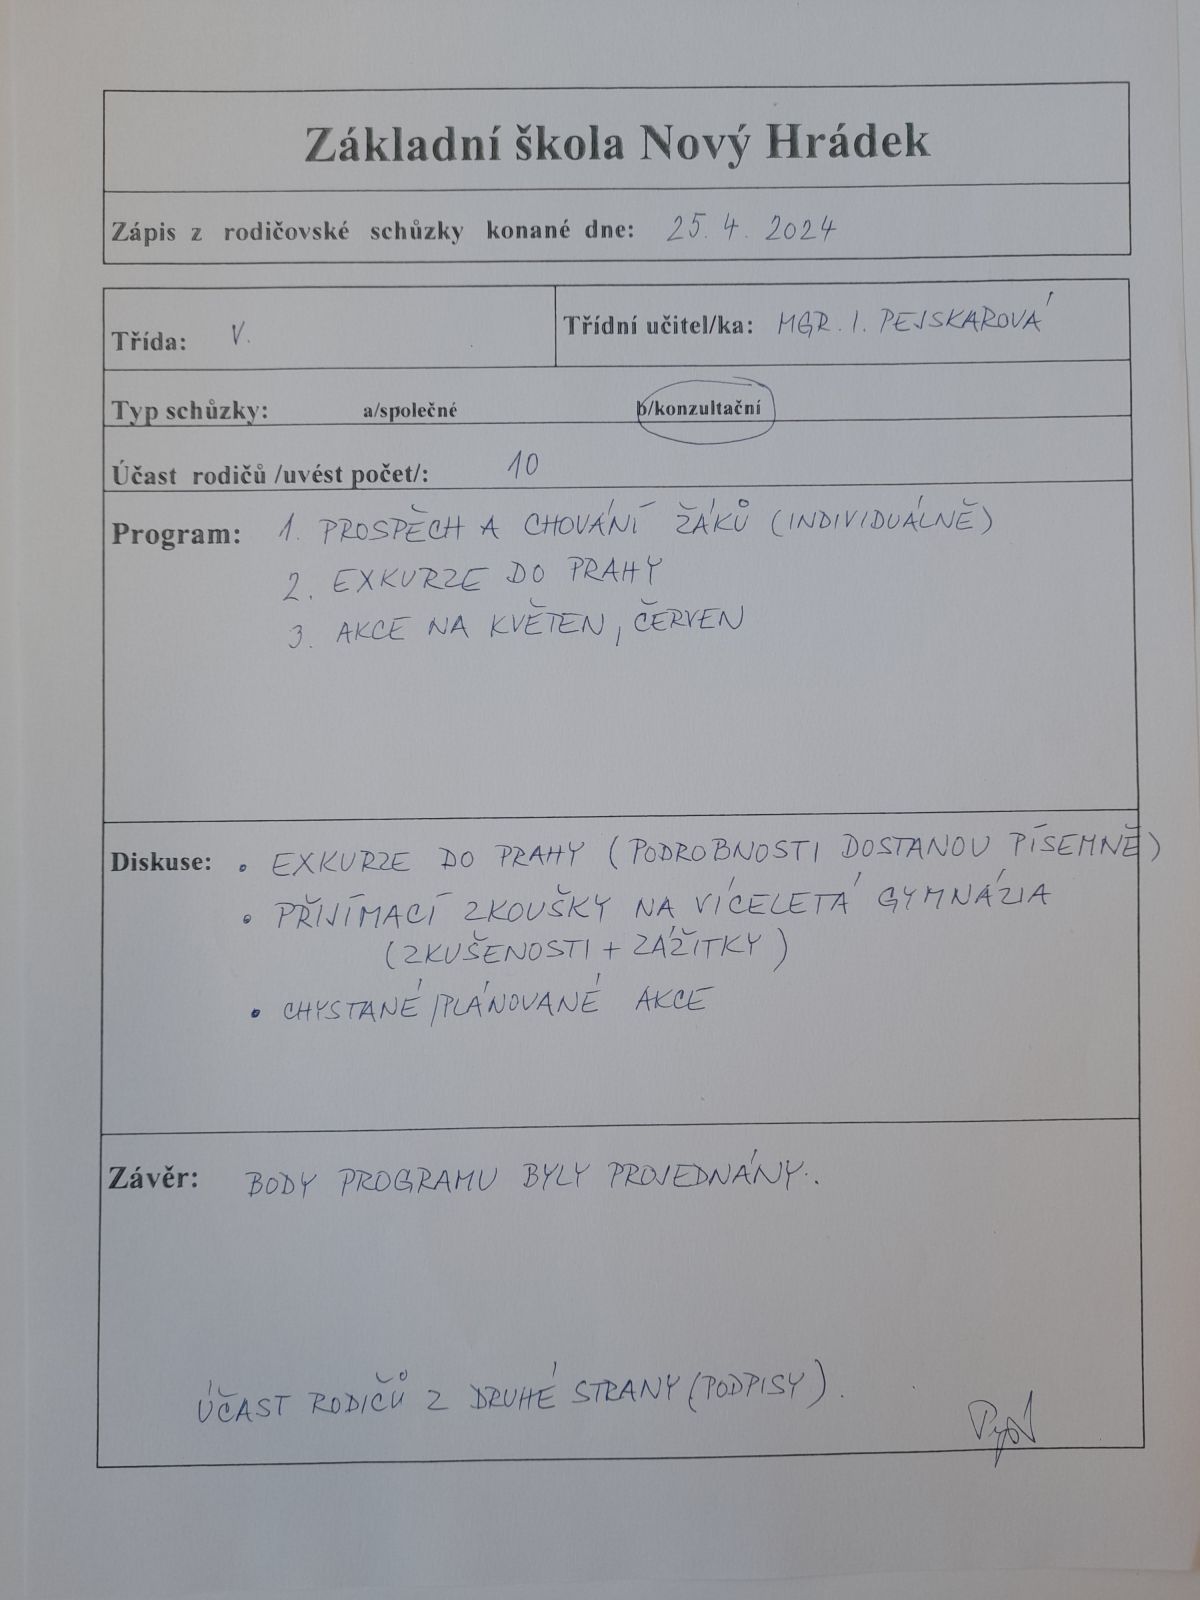 Základní škola Nový Hrádek
Zápis z rodičovské schůzky konané dne: 25. 4. 2024
Třída: V.
Třídní učitel/ka: MGR. I. PEJSKAROVÁ
Typ schůzky: a/společné b/konzultační
Účast rodičů /uvést počet/: 10
Program: 1. PROSPĚCH A CHOVÁNÍ ŽÁKŮ (INDIVIDUÁLNĚ)
2. EXKURZE DO PRAHY
3. AKCE NA KVĚTEN, ČERVEN
Diskuse: • EXKURZE DO PRAHY (PODROBNOSTI DOSTANOU PÍSEMNĚ)
• PŘIJÍMACÍ ZKOUŠKY NA VÍCELETÁ GYMNÁZIA
(ZKUŠENOSTI + ZÁŽITKY)
• CHYSTANÉ/PLÁNOVANÉ AKCE
Závěr: BODY PROGRAMU BYLY PROJEDNÁNY.
ÚČAST RODIČŮ Z DRUHÉ STRANY (PODPISY).